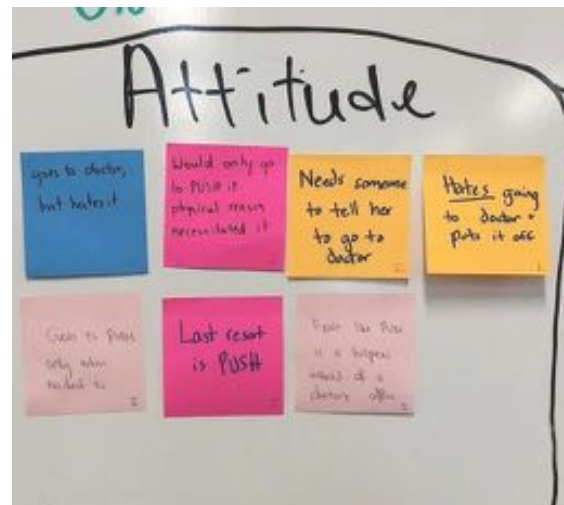 Attitude
goes to doctor,
but hates it
Would only go
to PUSH if
physical reason
necessitated it
Needs someone
to tell her
to go to
doctor
Hates going
to doctor +
puts it off
Goes to PUSH
only when
needed to
Last resort
is PUSH
Feels like PUSH
is a hospital
instead of a
doctor's office